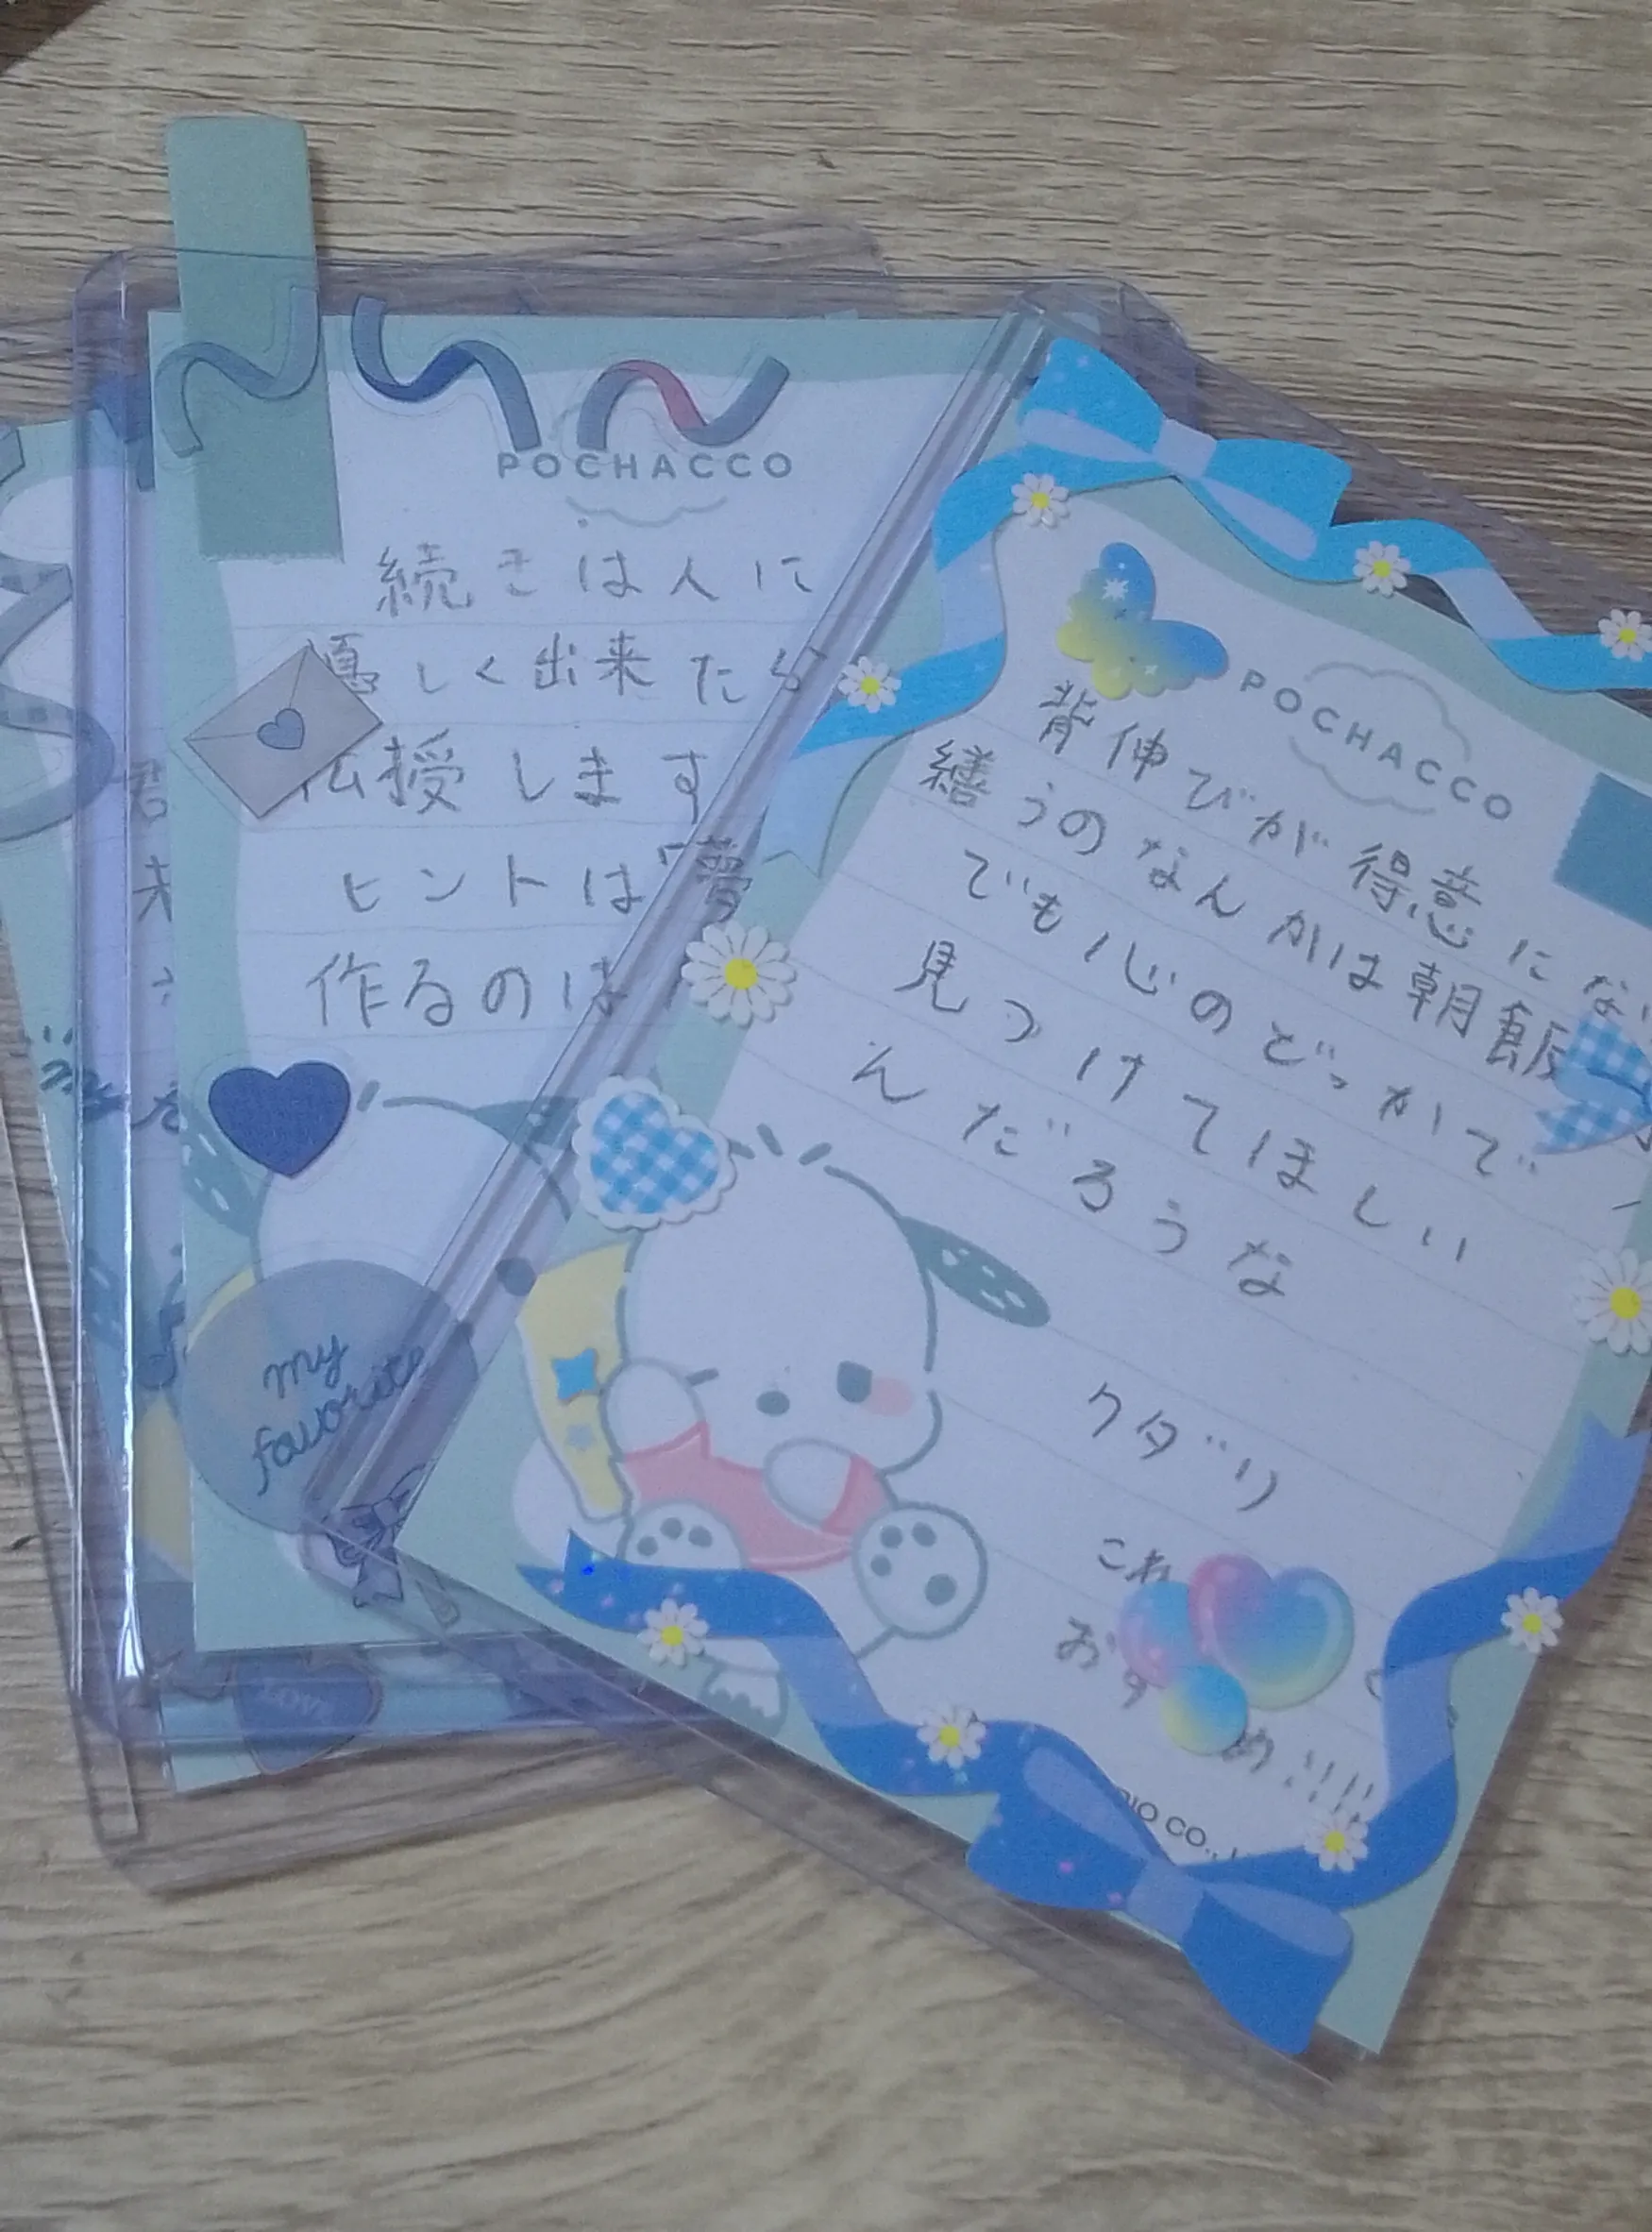 POCHACCO
続きは人に
優しく出来たら
伝授します
ヒントは「夢
作るのは
my
favorite
POCHACCO
背伸びが得意にな
繕うのなんかは朝飯
でも心のどっかで
見つけてほしい
んだろうな
クダリ
これ
おす
め!!!!
CO.,